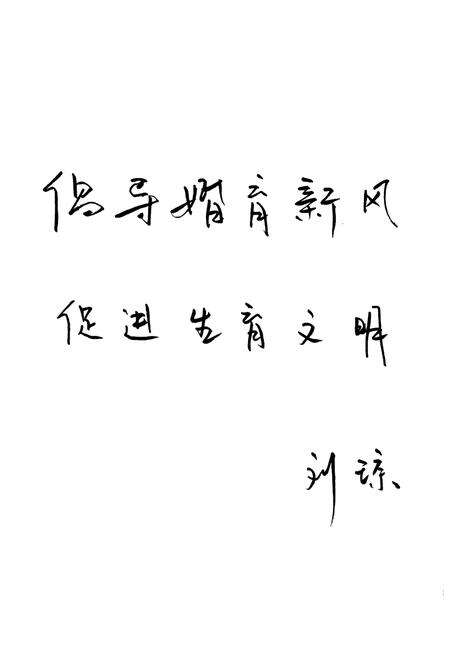 倡导婚育新风
促进生育文明
刘琼